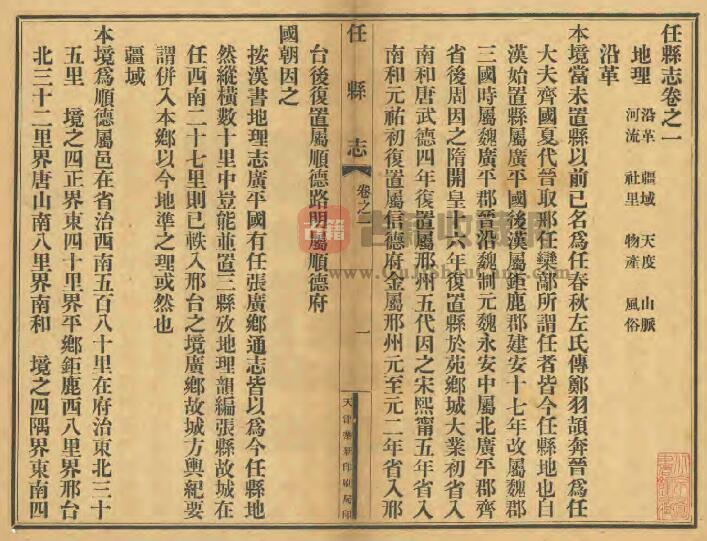 任縣志卷之一
地理 沿革 疆域 天度 山脈
河流 社里 物產 風俗
沿革
本境當未置縣以前已名爲任春秋左氏傳鄭羽頡奔晉爲任
大夫齊國夏伐晉取邢任欒鄗所謂任者皆今任縣地也自
漢始置縣屬廣平國後漢屬鉅鹿郡建安十七年改屬魏郡
三國時屬魏廣平郡晉沿魏制元魏永安中屬北廣平郡齊
省後周因之隋開皇十六年復置縣於苑鄉城大業初省入
南和唐武德四年復置屬邢州五代因之宋熙甯五年省入
南和元祐初復置屬信德府金屬邢州元至元二年省入邢
任縣志
卷之一
一
天津華新印刷局印
台後復置屬順德路明屬順德府
國朝因之
按漢書地理志廣平國有任張廣鄉通志皆以爲今任縣地
然縱橫數十里中豈能並置三縣攷地理韻編張縣故城在
任西南二十七里則已軼入邢台之境廣鄉故城方輿紀要
謂併入本鄉以今地準之理或然也
疆域
本境爲順德屬邑在省治西南五百八十里在府治東北三十
五里 境之四正界東四十里界平鄉鉅鹿西八里界邢台
北三十二里界唐山南八里界南和 境之四隅界東南四
古籍收藏網
www.GuJiShuCang.com